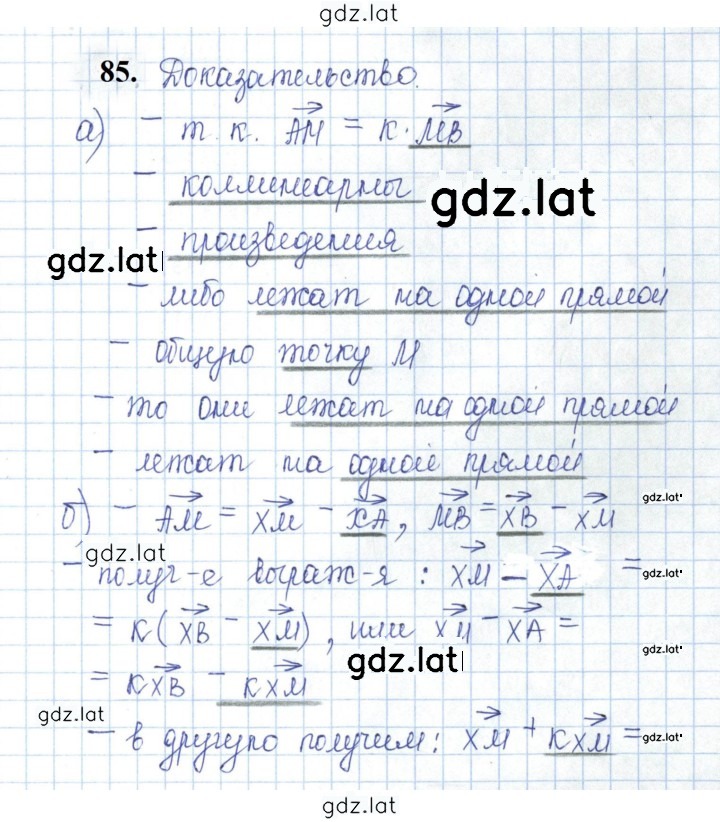 gdz.lat
85. Доказательство.
а) – т. к. AM = к · MB
– коллинеарны
gdz.lat
– произведения
gdz.lat
– либо лежат на одной прямой
– общую точку M
– то они лежат на одной прямой
– лежат на одной прямой
б) – AM = XM – XA, MB = XB – XM
gdz.lat
gdz.lat
– получ-е выраж-я : XM – XA =
gdz.lat
= к ( XB – XM ) , или XM – XA =
gdz.lat
gdz.lat
= кXB – кXM
gdz.lat
– в другую получим : XM + кXM =
gdz.lat
gdz.lat